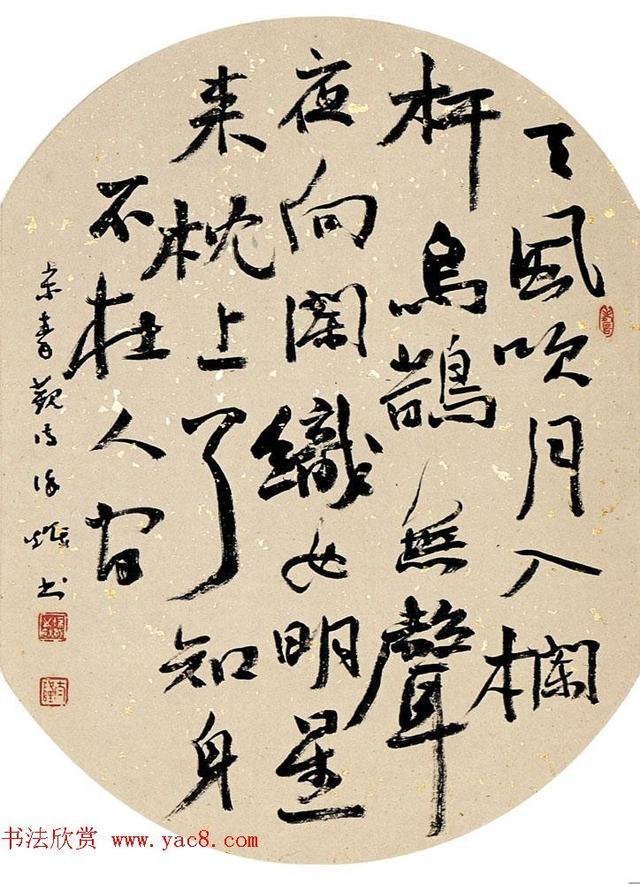 天風吹月入欄
杆烏鵲無聲
夜向闌織女明星
来枕上了知身
不在人间
书
书法欣赏 www.yac8.com